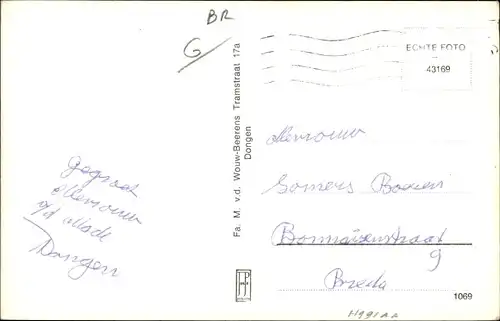 BR
G
ECHTE FOTO
43169
Fa. M. v.d. Wouw-Beerens Tramstraat 17a
Dongen
Gegroet
Mevrouw
Dongen
Mevrouw
Somers
9
Breda
1069
H491AA